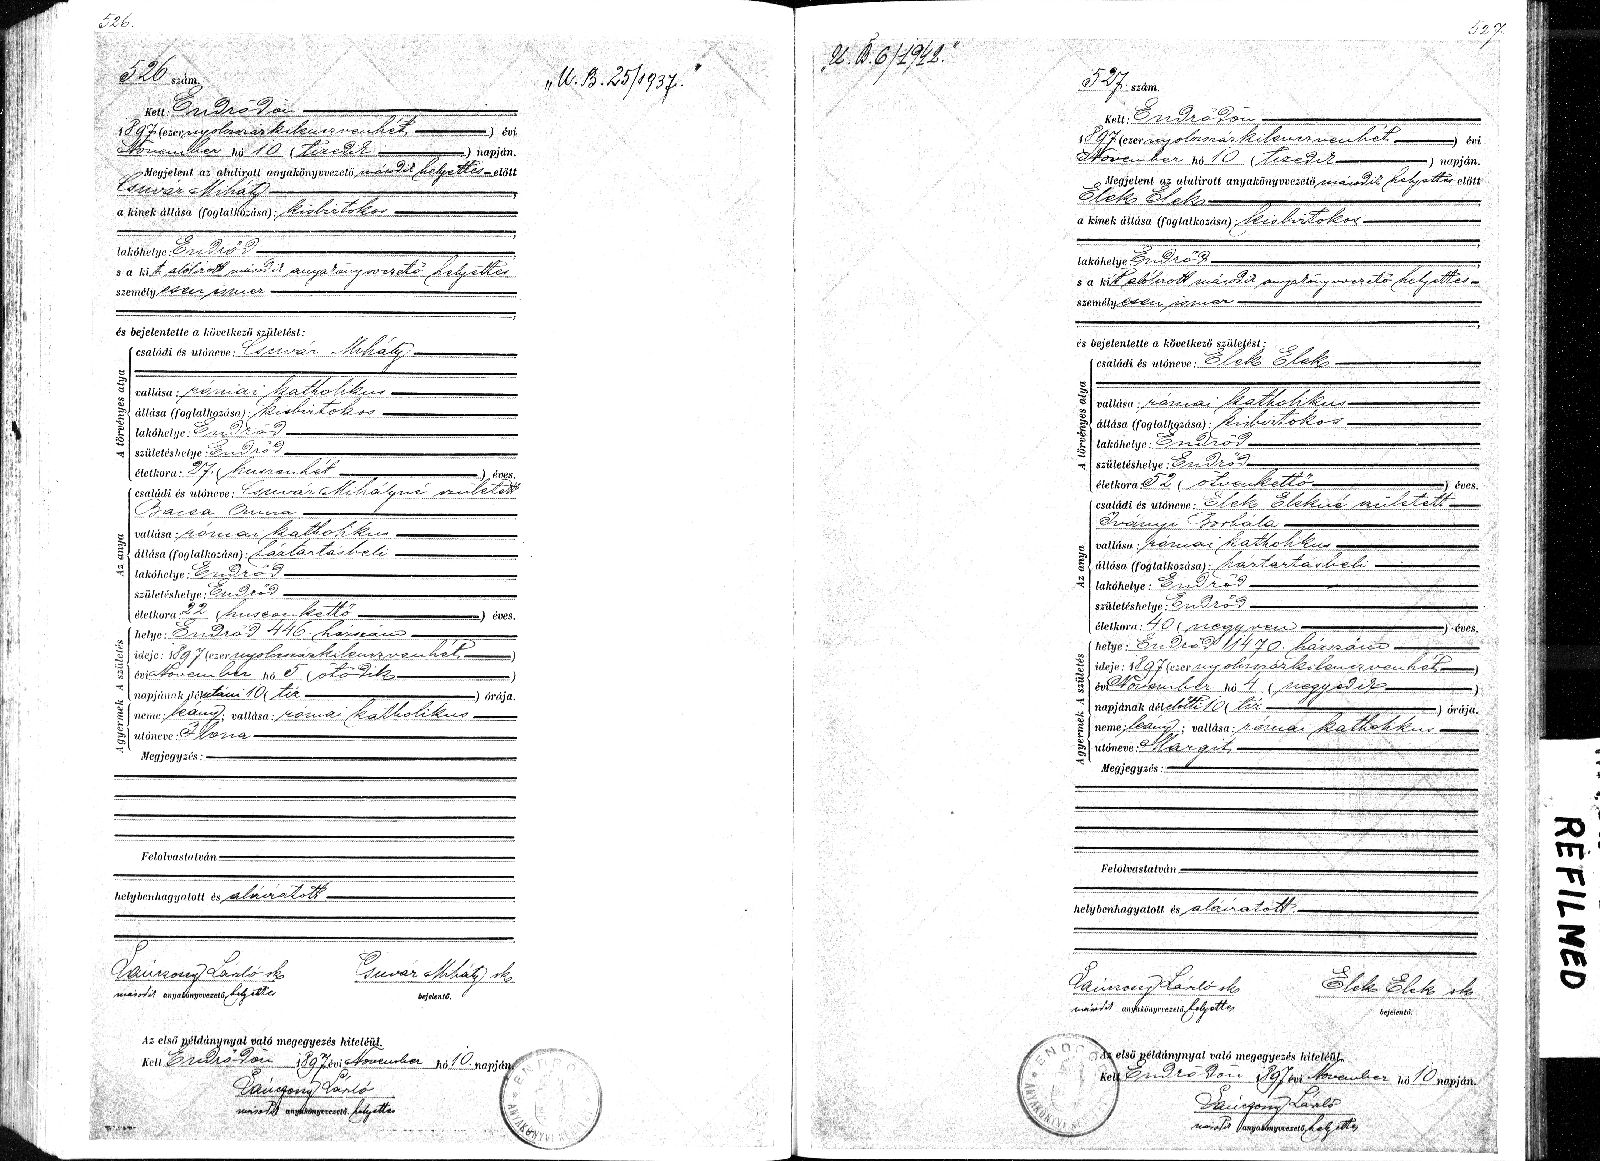 526.
526 szám.
„U. B. 25/1937."
Kelt Endrődön
1897 (ezer nyolcszázkilenczvenhét) évi
November hó 10 (tizedik) napján.
Megjelent az alulirott anyakönyvvezető második helyettes előtt
Csuvár Mihály
a kinek állása (foglalkozása): kisbirtokos
lakóhelye: Endrőd
s a kit alólirott második anyakönyvvezető helyettes
személyesen ismer
és bejelentette a következő születést:
A törvényes atya
családi és utóneve: Csuvár Mihály
vallása: római katholikus
állása (foglalkozása): kisbirtokos
lakóhelye: Endrőd
születéshelye: Endrőd
életkora: 27 (huszonhét) éves.
Az anya
családi és utóneve: Csuvár Mihályné született
Bacsa Anna
vallása: római katholikus
állása (foglalkozása): háztartásbeli
lakóhelye: Endrőd
születéshelye: Endrőd
életkora: 22 (huszonkettő) éves.
A születés
helye: Endrőd 446. házszám
ideje: 1897 (ezer nyolcszázkilenczvenhét)
évi November hó 5 (ötödik)
napjának délutáni 10 (tíz) órája.
A gyermek
neme: leány; vallása: római katholikus
utóneve: Ilona
Megjegyzés:
Felolvastatván
helybenhagyatott és aláiratott
László sk
Csuvár Mihály sk
második anyakönyvvezető helyettes
bejelentő.
Az első példánynyal való megegyezés hiteléül.
Kelt Endrődön 1897 évi November hó 10 napján.
László
második anyakönyvvezető helyettes
527.
„U. B. 6/1942."
527 szám.
Kelt: Endrődön
1897 (ezer nyolcszázkilenczvenhét) évi
November hó 10 (tizedik) napján.
Megjelent az alulirott anyakönyvvezető második helyettes előtt
Elek Elek
a kinek állása (foglalkozása): kisbirtokos
lakóhelye: Endrőd
s a kit alólirott második anyakönyvvezető helyettes
személyesen ismer
és bejelentette a következő születést:
A törvényes atya
családi és utóneve: Elek Elek
vallása: római katholikus
állása (foglalkozása): kisbirtokos
lakóhelye: Endrőd
születéshelye: Endrőd
életkora: 52 (ötvenkettő) éves.
Az anya
családi és utóneve: Elek Elekné született
Iványi Borbála
vallása: római katholikus
állása (foglalkozása): háztartásbeli
lakóhelye: Endrőd
születéshelye: Endrőd
életkora: 40 (negyven) éves.
A születés
helye: Endrőd 1470. házszám
ideje: 1897 (ezer nyolcszázkilenczvenhét)
évi November hó 4 (negyedik)
napjának délelőtti 10 (tíz) órája.
A gyermek
neme: leány; vallása: római katholikus
utóneve: Margit
Megjegyzés:
Felolvastatván
helybenhagyatott és aláiratott.
László sk
Elek Elek sk
második anyakönyvvezető helyettes
bejelentő.
Az első példánynyal való megegyezés hiteléül.
Kelt Endrődön 1897 évi November hó 10 napján.
László
második anyakönyvvezető helyettes
REFILMED